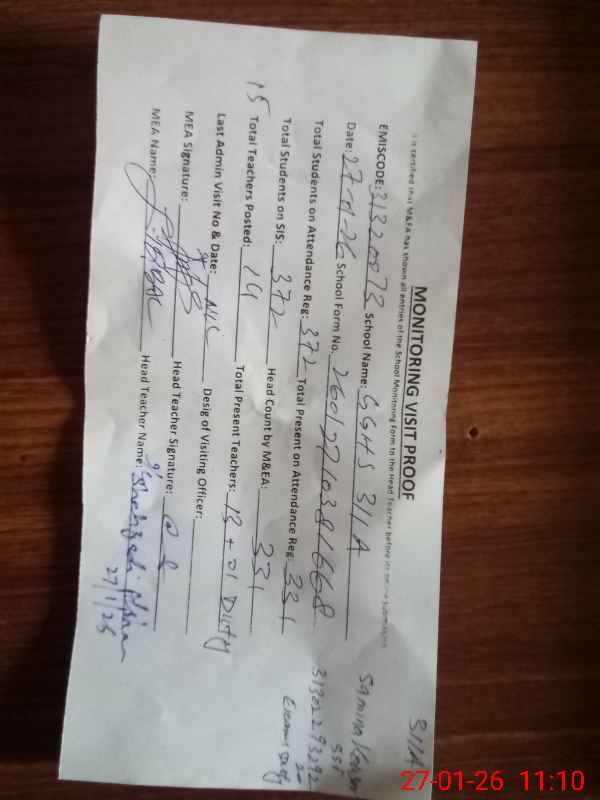 311A
MONITORING VISIT PROOF
It is certified that M&EA has shown all entries of the School Monitoring Form to the Head Teacher before its online submission
EMISCODE: 31320873 School Name: GGHS 311A
Date: 27-01-26 School Form No. 26012710381668
Total Students on Attendance Reg: 372 Total Present on Attendance Reg: 331
Total Students on SIS: 372 Head Count by M&EA: 331
15 Total Teachers Posted: 14 Total Present Teachers: 13 + 01 Duty
Last Admin Visit No & Date: Nil Desig of Visiting Officer:
MEA Signature: Head Teacher Signature:
MEA Name: Head Teacher Name:
27/1/26
Samina
SST
Exam duty
27-01-26 11:10